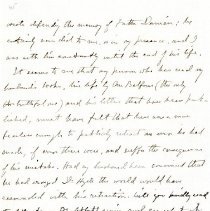 wrote defending the memory of Father Damien; he
certainly never did to me, or in my presence, and I
was with him constantly until the end of his life.
It seems to me that any person who has read my
husband's books, his life by Mr. Balfour (the only
                      ) and his letters that have been pub-
lished, must have felt that here was one
fearless enough to publicly retract an error he had
made, if error there were, and suffer the consequences
of his mistake. Had my husband been convinced that
he had wronged Dr. Hyde the world would have
resounded with his retraction. Will you kindly send
to